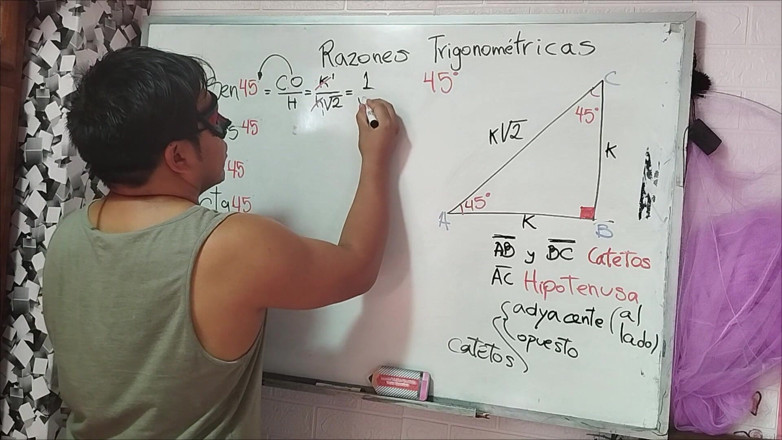 Razones Trigonométricas
45°
Sen 45 = CO/H = K1/K√2 = 1
45
45
Ctg 45
C
45°
K√2
K
A
45°
K
B
AB y BC Catetos
AC Hipotenusa
catetos { adyacente (al lado)
opuesto